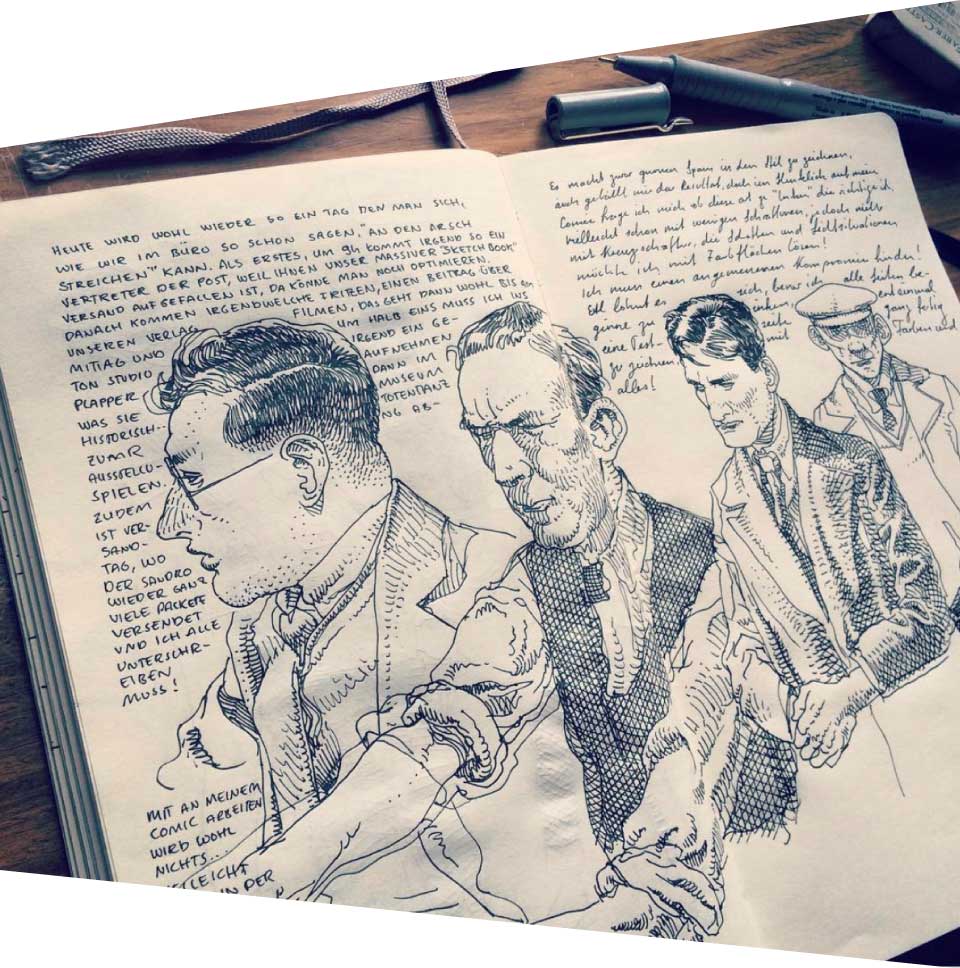 HEUTE WIRD WOHL WIEDER SO EIN TAG DEN MAN SICH,
WIE WIR IM BÜRO SO SCHÖN SAGEN, "AN DEN ARSCH
STREICHEN" KANN. ALS ERSTES, UM 9h KOMMT IRGEND SO EIN
VERTRETER DER POST, WEIL IHNEN UNSER MASSIVER "SKETCH BOOK"
VERSAND AUFGEFALLEN IST, DA KÖNNE MAN NOCH OPTIMIEREN.
DANACH KOMMEN IRGENDWELCHE FILMEN, EINEN BEITRAG ÜBER
UNSEREN VERLAG FILMEN, DAS GEHT DANN WOHL BIS AM
MITTAG UND UM HALB EINS MUSS ICH INS
TON STUDIO IRGEND EIN GE-
PLAPPER AUFNEHMEN
WAS SIE DANN IM
HISTORISCH... MUSEUM
ZUMR TOTENTANZ
AUSSTELLU- NG AB-
SPIELEN.
ZUDEM
IST VER-
SAND-
TAG, WO
DER SANDRO
WIEDER GANZ
VIELE PACKETE
VERSENDET
UND ICH ALLE
UNTERSCHR-
EIBEN
MUSS!
MIT AN MEINEM
COMIC ARBEITEN
WIRD WOHL
NICHTS...
VIELLEICHT
IN DER
Es macht zwar grossen Spass in den Stil zu zeichnen,
auch gefällt mir das Resultat, doch im Hinblick auf mein
Comic frage ich mich ob diese art zu "Inken" die richtige ist,
vielleicht schon mit wenigen Schraffuren, jedoch nicht
mit Kreuzschraffur, die Schatten und Lichtsituationen
möchte ich mit Farbflächen lösen!
Ich muss einen angemessenen Kompromiss finden!
lohnt es sich, bevor ich alle Seiten be-
ginne zu
eine Test- mit ganz fertig
zu zeichnen Farben und
alles!